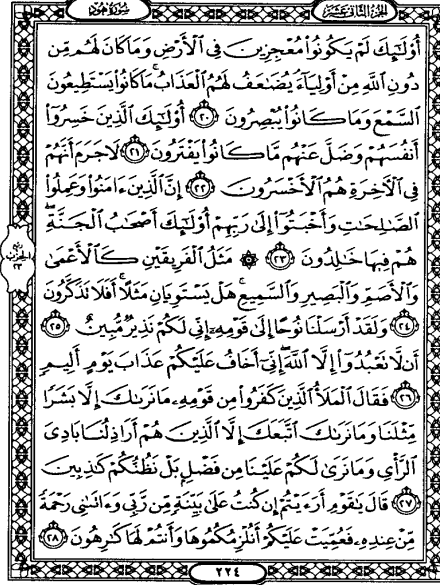 الجزء الثاني عشر
سورة هود
أُوْلَٰٓئِكَ لَمْ يَكُونُواْ مُعْجِزِينَ فِي ٱلْأَرْضِ وَمَا كَانَ لَهُم مِّن
دُونِ ٱللَّهِ مِنْ أَوْلِيَآءَ يُضَٰعَفُ لَهُمُ ٱلْعَذَابُ ۚ مَا كَانُواْ يَسْتَطِيعُونَ
ٱلسَّمْعَ وَمَا كَانُواْ يُبْصِرُونَ ٢٠ أُوْلَٰٓئِكَ ٱلَّذِينَ خَسِرُوٓاْ
أَنفُسَهُمْ وَضَلَّ عَنْهُم مَّا كَانُواْ يَفْتَرُونَ ٢١ لَا جَرَمَ أَنَّهُمْ
فِي ٱلْأٓخِرَةِ هُمُ ٱلْأَخْسَرُونَ ٢٢ إِنَّ ٱلَّذِينَ ءَامَنُواْ وَعَمِلُواْ
ٱلصَّٰلِحَٰتِ وَأَخْبَتُوٓاْ إِلَىٰ رَبِّهِمْ أُوْلَٰٓئِكَ أَصْحَٰبُ ٱلْجَنَّةِ ۖ
هُمْ فِيهَا خَٰلِدُونَ ٢٣ ۞ مَثَلُ ٱلْفَرِيقَيْنِ كَٱلْأَعْمَىٰ
وَٱلْأَصَمِّ وَٱلْبَصِيرِ وَٱلسَّمِيعِ ۚ هَلْ يَسْتَوِيَانِ مَثَلًا ۚ أَفَلَا تَذَكَّرُونَ
٢٤ وَلَقَدْ أَرْسَلْنَا نُوحًا إِلَىٰ قَوْمِهِۦٓ إِنِّي لَكُمْ نَذِيرٌ مُّبِينٌ ٢٥
أَن لَّا تَعْبُدُوٓاْ إِلَّا ٱللَّهَ ۖ إِنِّيٓ أَخَافُ عَلَيْكُمْ عَذَابَ يَوْمٍ أَلِيمٍ
٢٦ فَقَالَ ٱلْمَلَأُ ٱلَّذِينَ كَفَرُواْ مِن قَوْمِهِۦ مَا نَرَىٰكَ إِلَّا بَشَرًا
مِّثْلَنَا وَمَا نَرَىٰكَ ٱتَّبَعَكَ إِلَّا ٱلَّذِينَ هُمْ أَرَاذِلُنَا بَادِيَ
ٱلرَّأْيِ وَمَا نَرَىٰ لَكُمْ عَلَيْنَا مِن فَضْلٍۭ بَلْ نَظُنُّكُمْ كَٰذِبِينَ
٢٧ قَالَ يَٰقَوْمِ أَرَءَيْتُمْ إِن كُنتُ عَلَىٰ بَيِّنَةٍ مِّن رَّبِّي وَءَاتَىٰنِي رَحْمَةً
مِّنْ عِندِهِۦ فَعُمِّيَتْ عَلَيْكُمْ أَنُلْزِمُكُمُوهَا وَأَنتُمْ لَهَا كَٰرِهُونَ ٢٨
ربع
الحزب
٢٣
٢٢٤